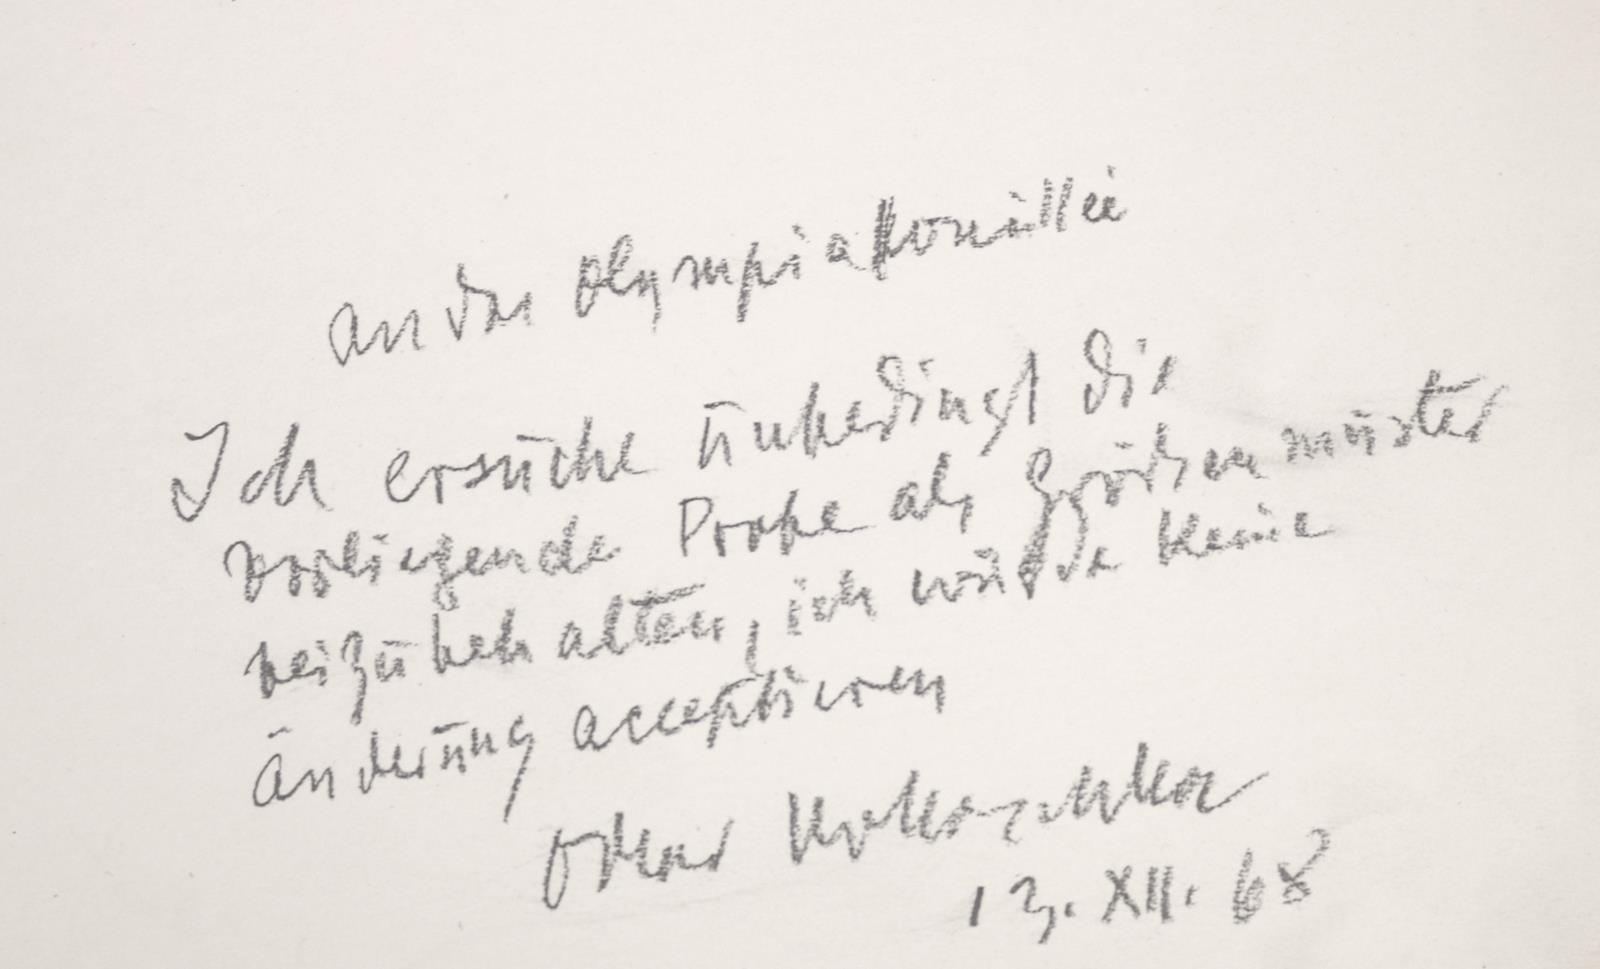 an das Olympiakomittée
Ich ersuche unbedingt die
vorliegende Probe als Größenmuster
beizubehalten, ich würde keine
änderung acceptieren
Oskar Kokoschka
13. XII. 68